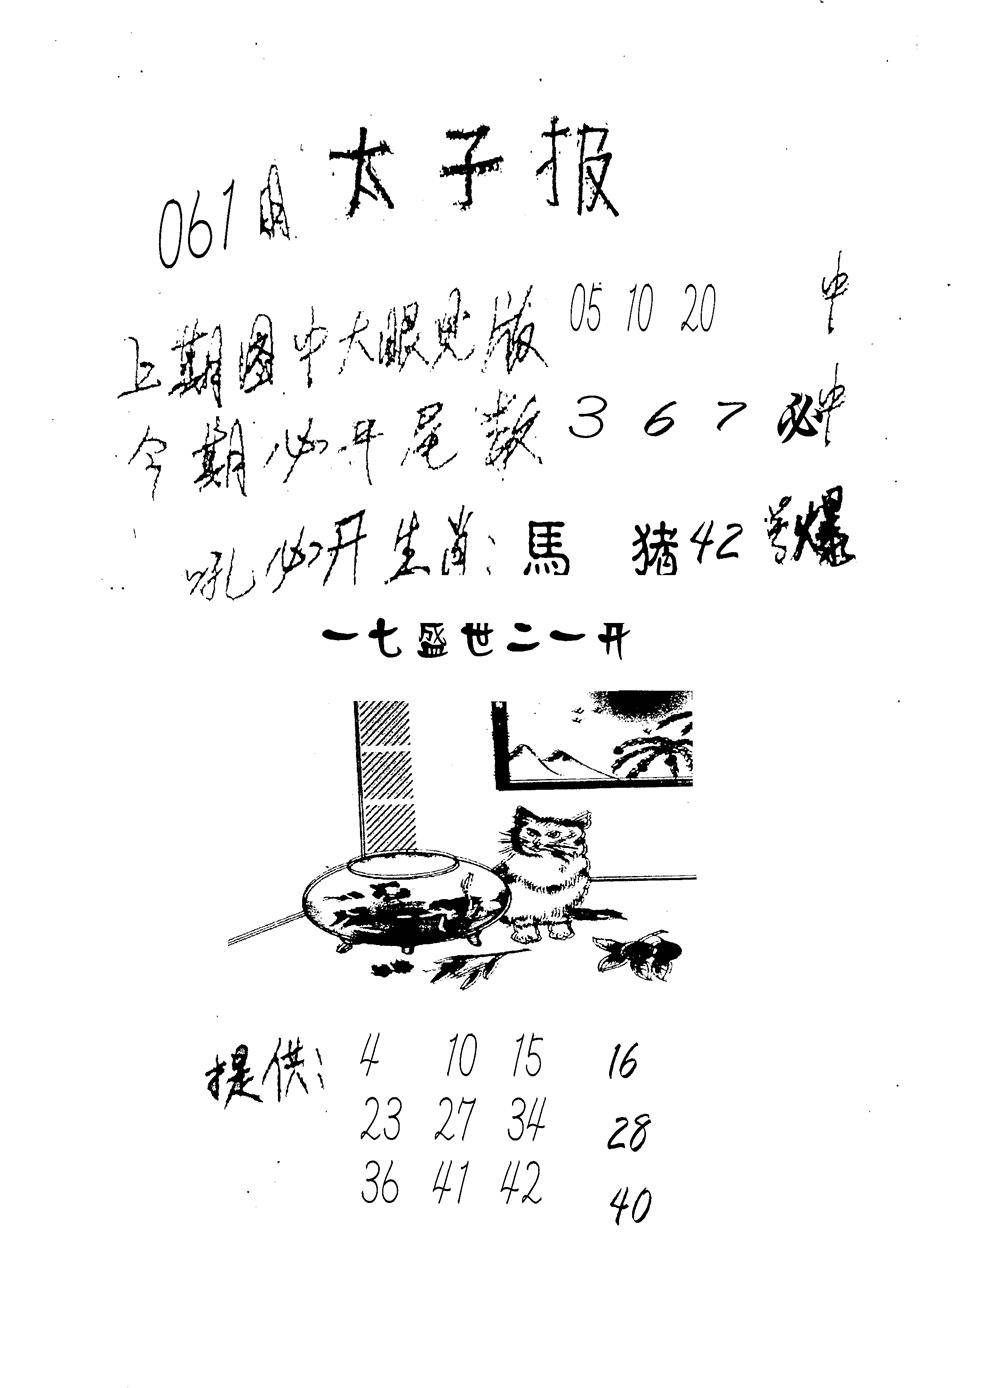 太子报
061期
上期图中大眼见版 05 10 20 中
今期必开尾数 3 6 7 必中
吼必开生肖：馬 猪 42 号爆
一七盛世二一开
提供： 4 10 15 16
23 27 34 28
36 41 42 40